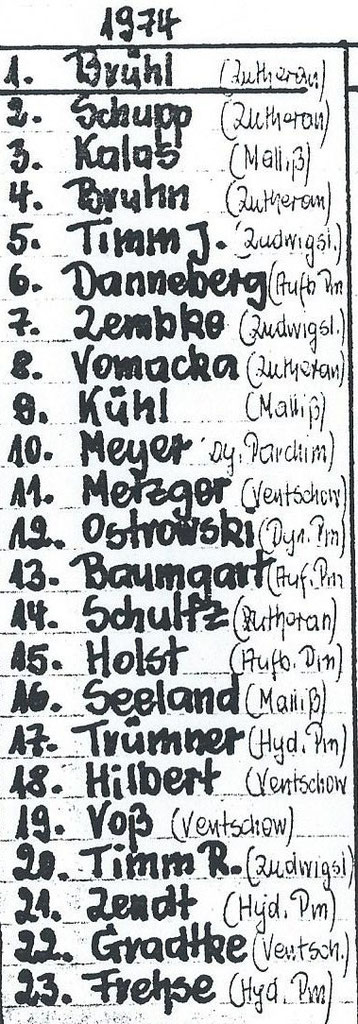 1974
1. Brühl (Lutheran)
2. Schupp (Lutheran)
3. Kalas (Malliß)
4. Bruhn (Lutheran)
5. Timm J. (Ludwigsl.)
6. Danneberg (Aufb. Pm
7. Lembke (Ludwigsl.)
8. Vomacka (Lutheran)
9. Kühl (Malliß)
10. Meyer Dy. Parchim)
11. Metzger (Ventschow)
12. Ostrowski (Dyn. Pm)
13. Baumgart (Auf. Pm
14. Schultz (Lutheran)
15. Holst (Aufb. Pm)
16. Seeland (Malliß)
17. Trümner (Hyd. Pm)
18. Hilbert (Ventschow
19. Voß (Ventschow)
20. Timm R. (Ludwigsl)
21. Lendt (Hyd. Pm)
22. Gradtke (Ventsch.)
23. Frehse (Hyd. Pm)